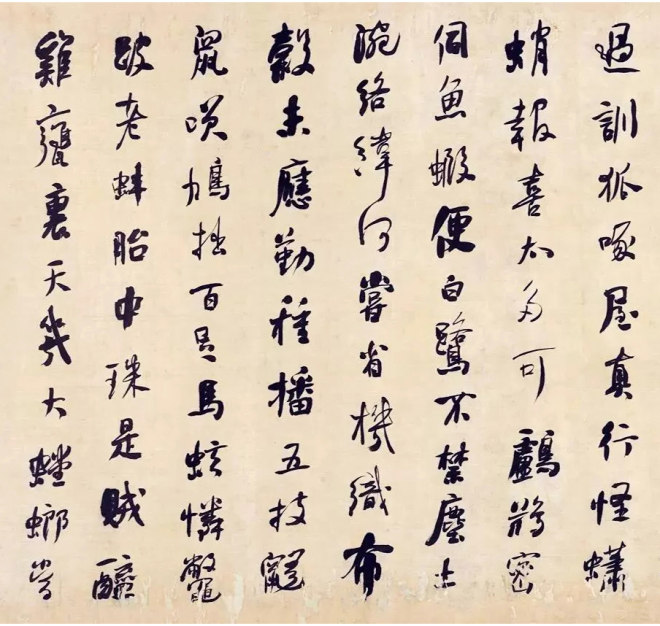 過訓狐啄屋真行怪蠨
蛸報喜太多可鸕鶿密
伺魚蝦便白鷺不禁塵土
涴絡緯何嘗省機織布
穀未應勤種播五技鼯
鼠笑鳩拙百足馬蚿憐鼈
跛老蚌胎中珠是賊醯
雞甕裏天幾大螳螂當